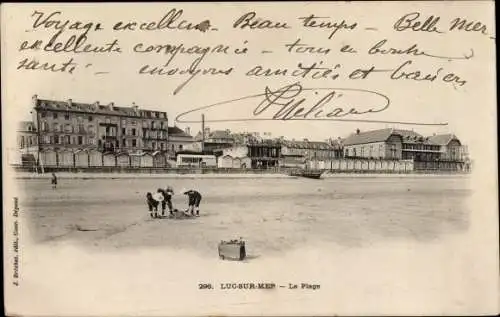 Voyage excellent – Beau temps – Belle Mer
excellente compagnie – tous en bonne
santé – envoyons amitiés et baisers
296. LUC-SUR-MER – La Plage
J. Bréchet, édit., Caen. Déposé